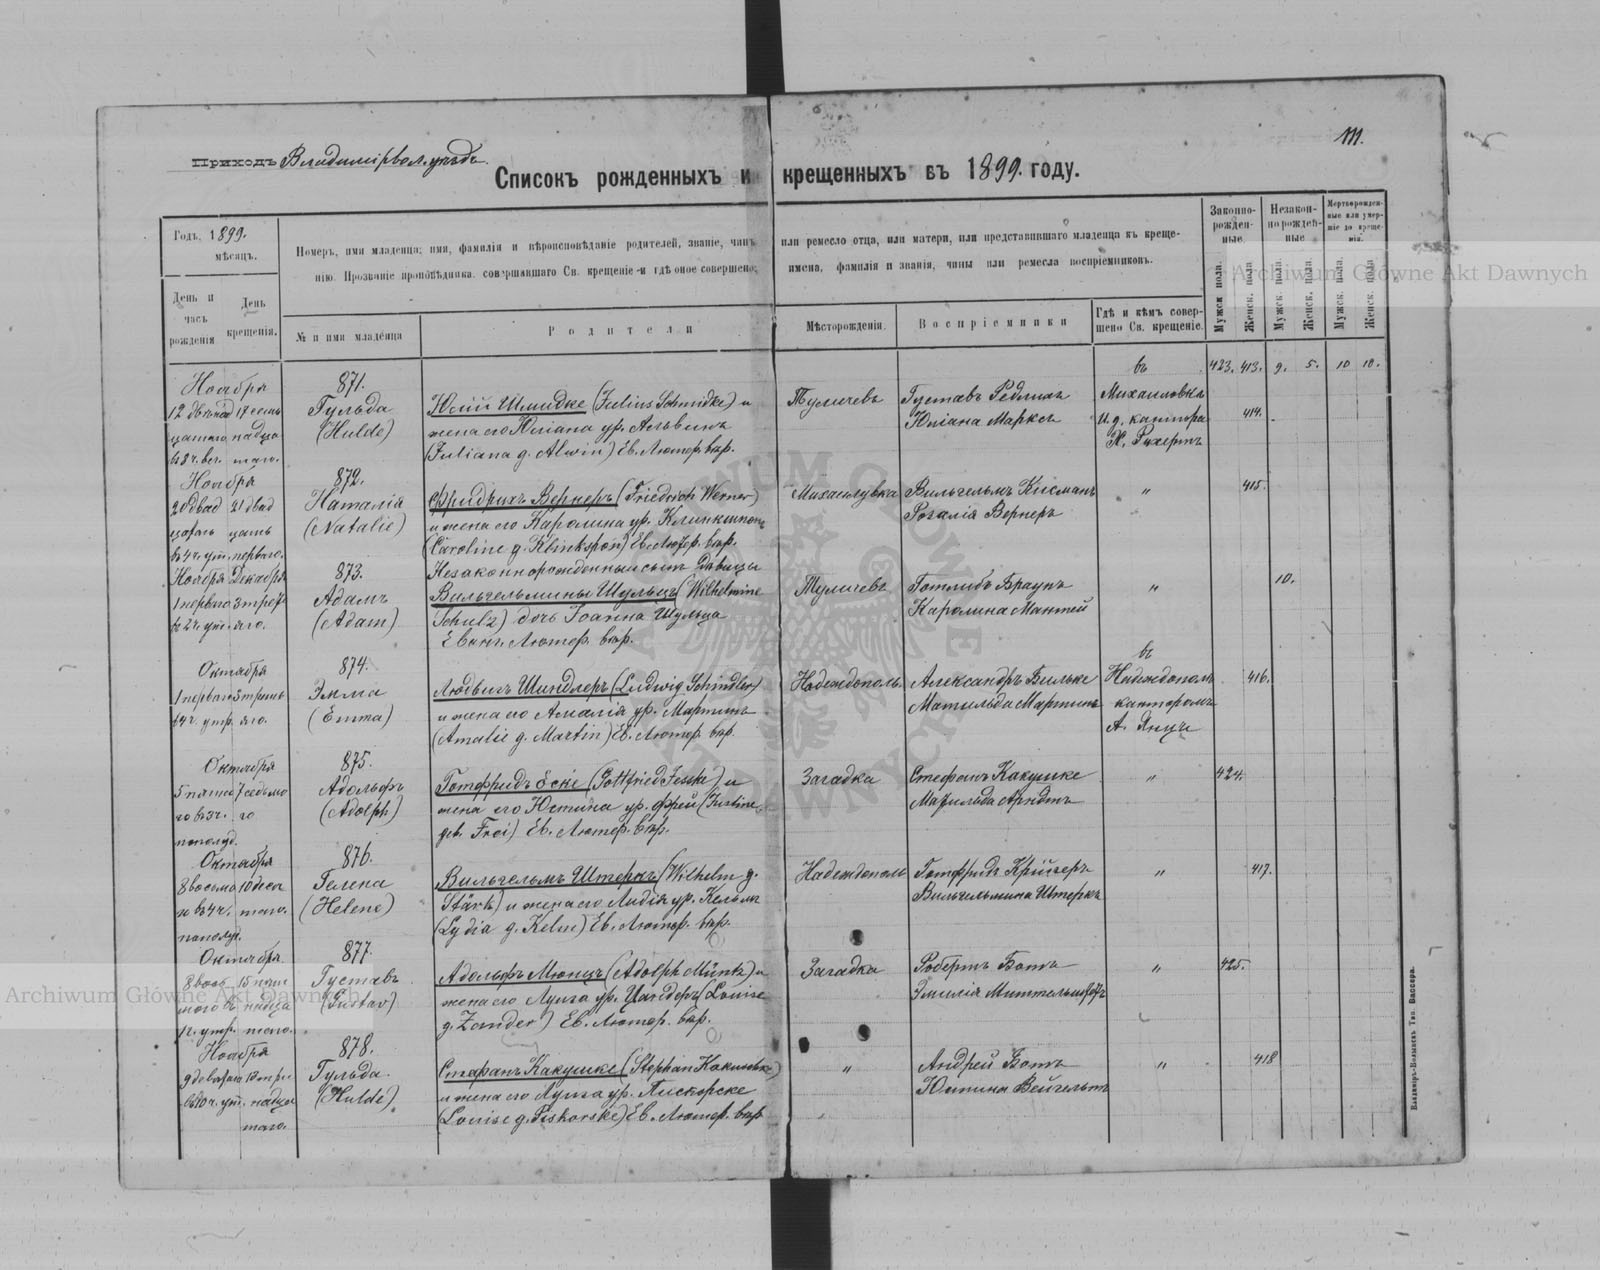 111.
Приходъ Владимірвол. уѣздъ.
Списокъ рожденныхъ и крещенныхъ въ 1899. году.
Годъ, 1899.
мѣсяцъ.
День и часъ рожденія
День крещенія.
Номеръ, имя младенца; имя, фамилія и вѣроисповѣданіе родителей, званіе, чинъ или ремесло отца, или матери, или представившаго младенца къ креще-
нію. Прозваніе проповѣдника совершавшаго Св. крещеніе и гдѣ оное совершено; имена, фамилія и званія, чины или ремесла воспріемниковъ.
№ и имя младенца
Родители
Мѣсторожденія.
Воспріемники
Гдѣ и кѣмъ совер-
шено Св. крещеніе.
Законно-
рожден-
ные
Незакон-
норожден-
ные
Мертворожден-
ные или умер-
шіе до креще-
нія.
Мужск. пола.
Женск. пола
Мужск. пола.
Женск. пола.
Мужск. пола.
Женск. пола
въ 423. 413. 9. 5. 10 10.
Ноября
12 двѣнад 17 семь
цатаго надца
въ 8 ч. веч. таго.
871.
Гульда
(Hulde)
Юлій Шмидке (Julius Schmidke) и
жена его Юліана ур. Альвинъ
(Juliana g. Alwin) Ев. Лютер. вѣр.
Туличевъ
Густавъ Редлихъ
Юліана Марксъ
Михаиловкѣ
И. д. кантора
Х. Рихертъ
414.
Ноября
20 двад 21 двад
цатаго цать
въ 4 ч. ут. перваго.
872.
Наталія
(Natalie)
Фридрихъ Вернеръ (Friedrich Werner)
и жена его Каролина ур. Клинкшпонъ
(Caroline g. Klinkspon) Ев. Лютер. вѣр.
Михаилувка
Вильгельмъ Кисманъ
Розалія Вернеръ
"
415.
Ноября Декабря
1 перваго 3 треть
въ 2 ч. ут. яго.
873.
Адамъ
(Adam)
Незаконнорожденный сынъ дѣвицы
Вильгельмины Шульцъ (Wilhelmine
Schulz) дочь Іоанна Шульца
Еван. Лютер. вѣр.
Туличевъ
Готлибъ Браунъ
Каролина Мантей
"
10.
Октября
1 перваго 3 треть
въ 4 ч. утр. яго.
874.
Эмма
(Emma)
Людвигъ Шиндлеръ (Ludwig Schindler)
и жена его Амалія ур. Мартинъ
(Amalie g. Martin) Ев. Лютер. вѣр.
Надеждополь.
Александръ Вильке
Матильда Мартинъ
въ
Надеждополѣ
канторомъ
А. Янцъ
416.
Октября
5 пята 7 седьмо
го въ 3 ч. го
пополуд.
875.
Адольфъ
(Adolph)
Готфридъ Еске (Gottfried Jesske) и
жена его Юстина ур. Фрей (Justine
geb. Frei) Ев. Лютер. вѣр.
Загадка
Стефанъ Какушке
Матильда Арндтъ
"
424.
Октября
8 восьма 10 деся
го въ 4 ч. таго.
пополуд.
876.
Гелена
(Helene)
Вильгельмъ Штеркъ (Wilhelm g.
Stärk) и жена его Лидія ур. Кельмъ
(Lydia g. Kelm) Ев. Лютер. вѣр.
Надеждополь
Готфридъ Крюгеръ
Вильгельмина Штеркъ
"
417.
Октября
8 вось 15 пят
маго въ надца
1 ч. утр. таго.
877.
Густавъ
(Gustav)
Адольфъ Мюнцъ (Adolph Müntz) и
жена его Луиза ур. Цандеръ (Louise
g. Zander) Ев. Лютер. вѣр.
Загадка
Робертъ Ботъ
Эмилія Миттельштедтъ
"
425.
Ноября
9 девятаго 13 три
въ 10 ч. ут. надца
таго.
878.
Гульда
(Hulde)
Стефанъ Какушке (Stephan Kakuschke)
и жена его Луиза ур. Пискорске
(Louise g. Piskorske) Ев. Лютер. вѣр.
"
Андрей Ботъ
Юстина Вейгельтъ
"
418
Владиміръ-Волынскъ Тип. Вассера.
Archiwum Główne Akt Dawnych
Archiwum Główne Akt Dawnych